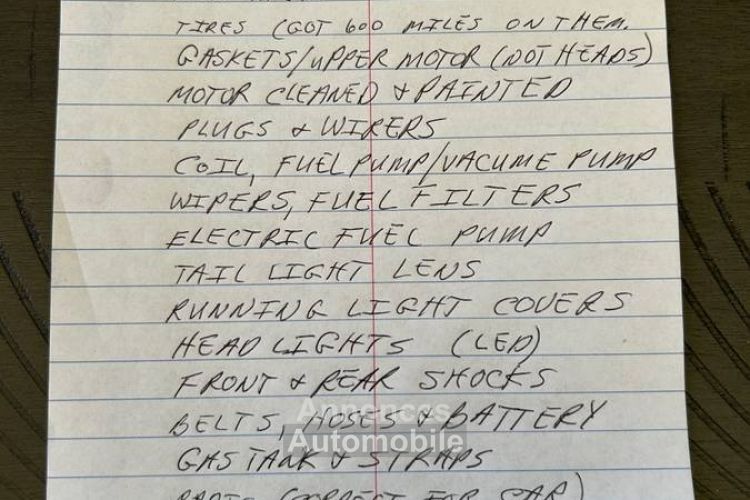 TIRES (GOT 600 MILES ON THEM.
GASKETS/UPPER MOTOR (NOT HEADS)
MOTOR CLEANED & PAINTED
PLUGS & WIRERS
COIL, FUEL PUMP/VACUME PUMP
WIPERS, FUEL FILTERS
ELECTRIC FUEL PUMP
TAIL LIGHT LENS
RUNNING LIGHT COVERS
HEAD LIGHTS (LED)
FRONT & REAR SHOCKS
BELTS, HOSES & BATTERY
Annonces
Automobile
GAS TANK & STRAPS
PARTS (CORRECT FOR CAR)